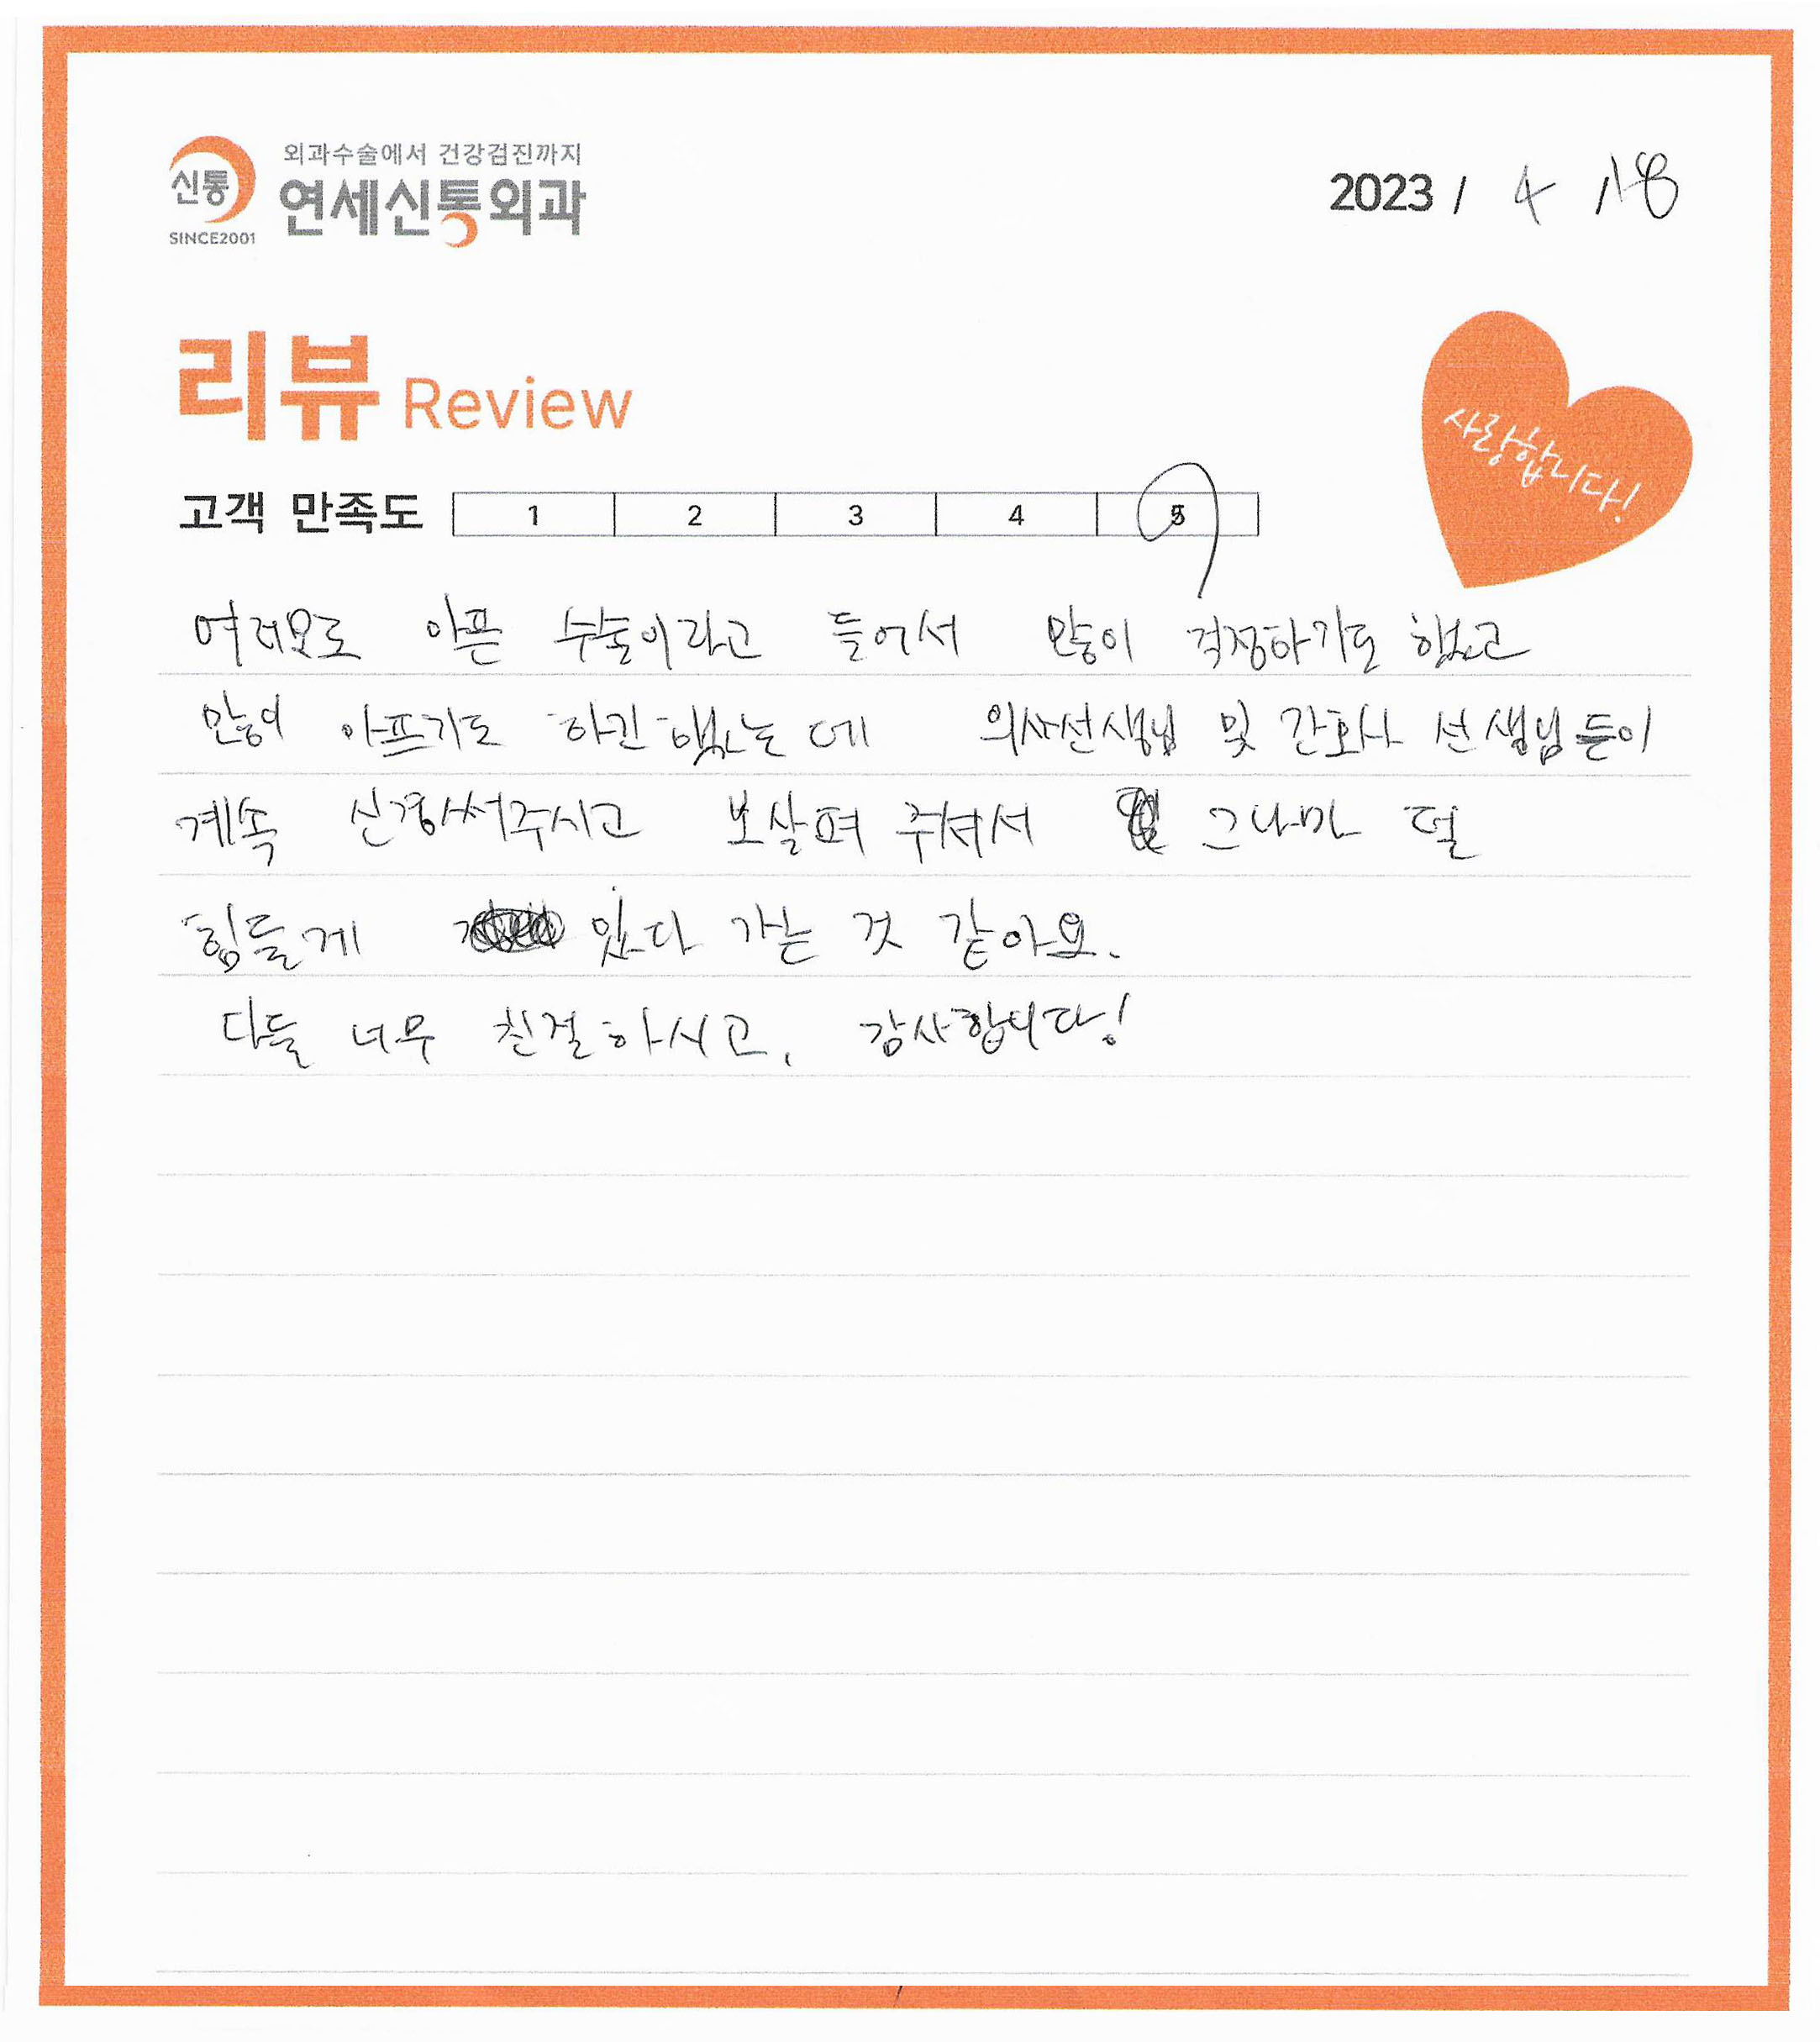 외과수술에서 건강검진까지
신통
연세신통외과
SINCE2001
2023 / 4 / 18
리뷰 Review
사랑합니다!
고객 만족도 1 2 3 4 5
여러모로 아픈 수술이라고 들어서 많이 걱정하기도 했고
많이 아프기도 하긴 했는데 의사선생님 및 간호사 선생님들이
계속 신경써주시고 보살펴 주셔서 그나마 덜
힘들게 있다 가는 것 같아요.
다들 너무 친절하시고, 감사합니다!